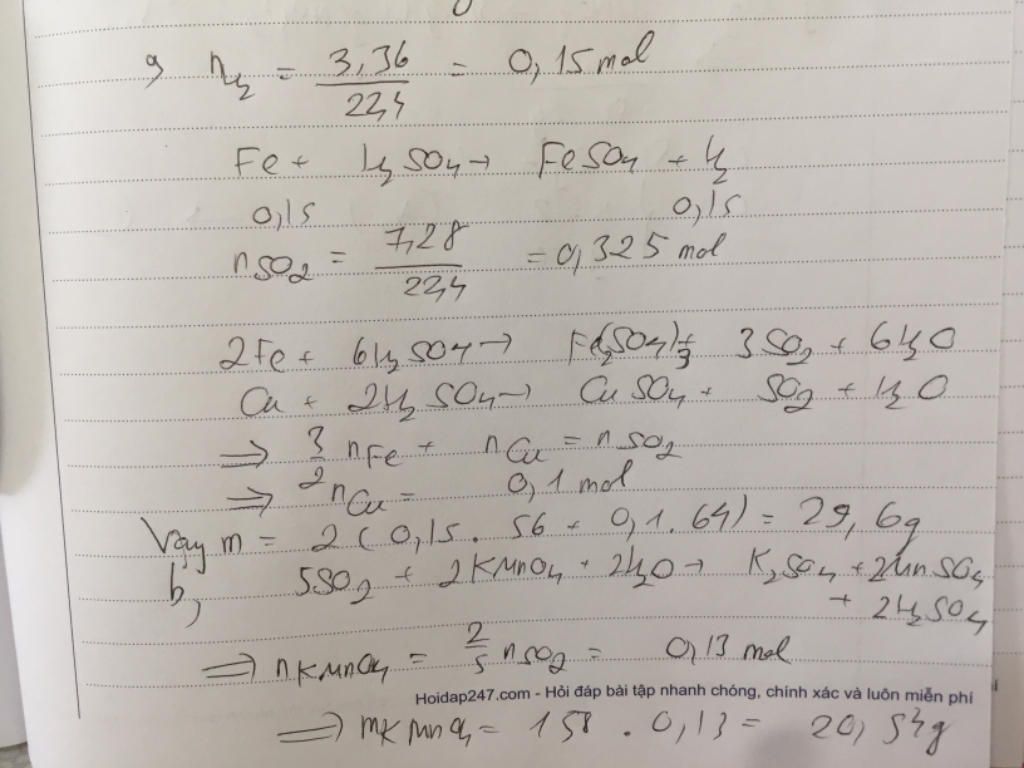 a, nH2 = 3,36/22,4 = 0,15 mol
Fe + H2SO4 → FeSO4 + H2
0,15 0,15
nSO2 = 7,28/22,4 = 0,325 mol
2Fe + 6H2SO4 → Fe2(SO4)3 + 3SO2 + 6H2O
Cu + 2H2SO4 → CuSO4 + SO2 + H2O
⇒ 3/2 nFe + nCu = nSO2
⇒ nCu = 0,1 mol
Vậy m = 2(0,15 . 56 + 0,1 . 64) = 29,6g
b, 5SO2 + 2KMnO4 + 2H2O → K2SO4 + 2MnSO4
+ 2H2SO4
⇒ nKMnO4 = 2/5 nSO2 = 0,13 mol
Hoidap247.com - Hỏi đáp bài tập nhanh chóng, chính xác và luôn miễn phí
⇒ mKMnO4 = 158 . 0,13 = 20,54g